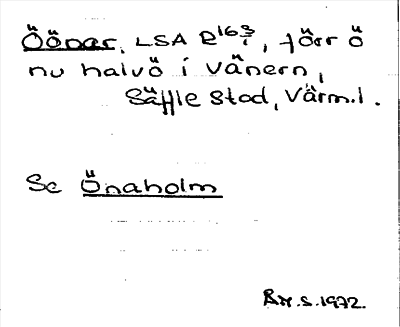 Öönar, LSA R16 3/1, förr ö
nu halvö i Vänern,
Säffle stad, Värml.
Se Önaholm
RM.S.1972.